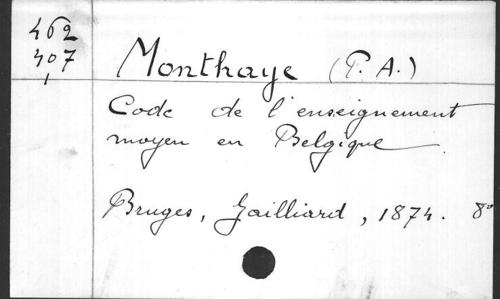 462
407
1
Monthaye (P. A.)
Code de l'enseignement
moyen en Belgique
Bruges, Gailliard, 1874. 8°